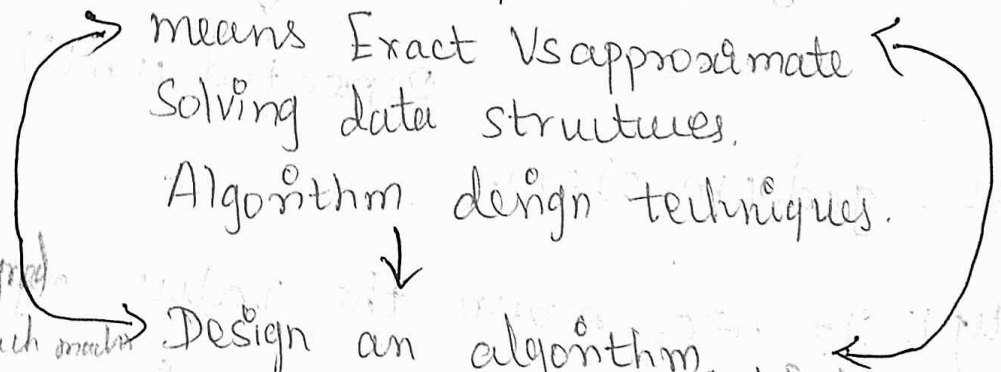 means Exact Vs approximate
Solving data structures.
Algorithm design techniques.
Design an algorithm